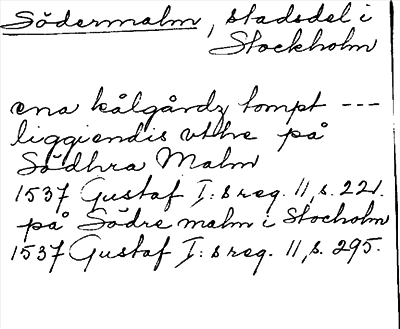 Södermalm, stadsdel i
Stockholm
ena kålgårdz tompt ---
liggiendis vthe på
Södhra Malm
1537 Gustaf I:s reg. 11, s. 221.
på Södre malm i Stocholm
1537 Gustaf I:s reg. 11, s. 295.